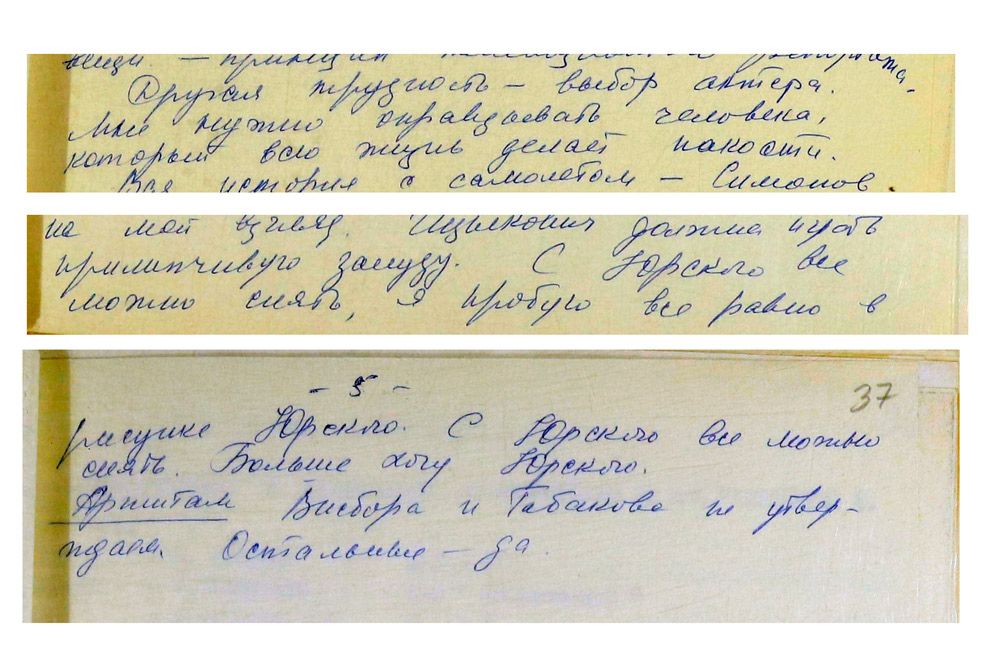 вещи. — принцип телевизионного репортажа.
Другая трудность — выбор актера.
Мне нужно оправдывать человека,
который всю жизнь делает пакости.
Вся история с самолетом — Симонов
на мой взгляд. Ицыкович должна играть
прилипчивую зануду. С Юрского все
можно снять, я пробую все равно в
- 5 -
37
рисунке Юрского. С Юрского все можно
снять. Больше хочу Юрского.
Арнштам Визбора и Табакова не утвер-
ждаем. Остальные — да.